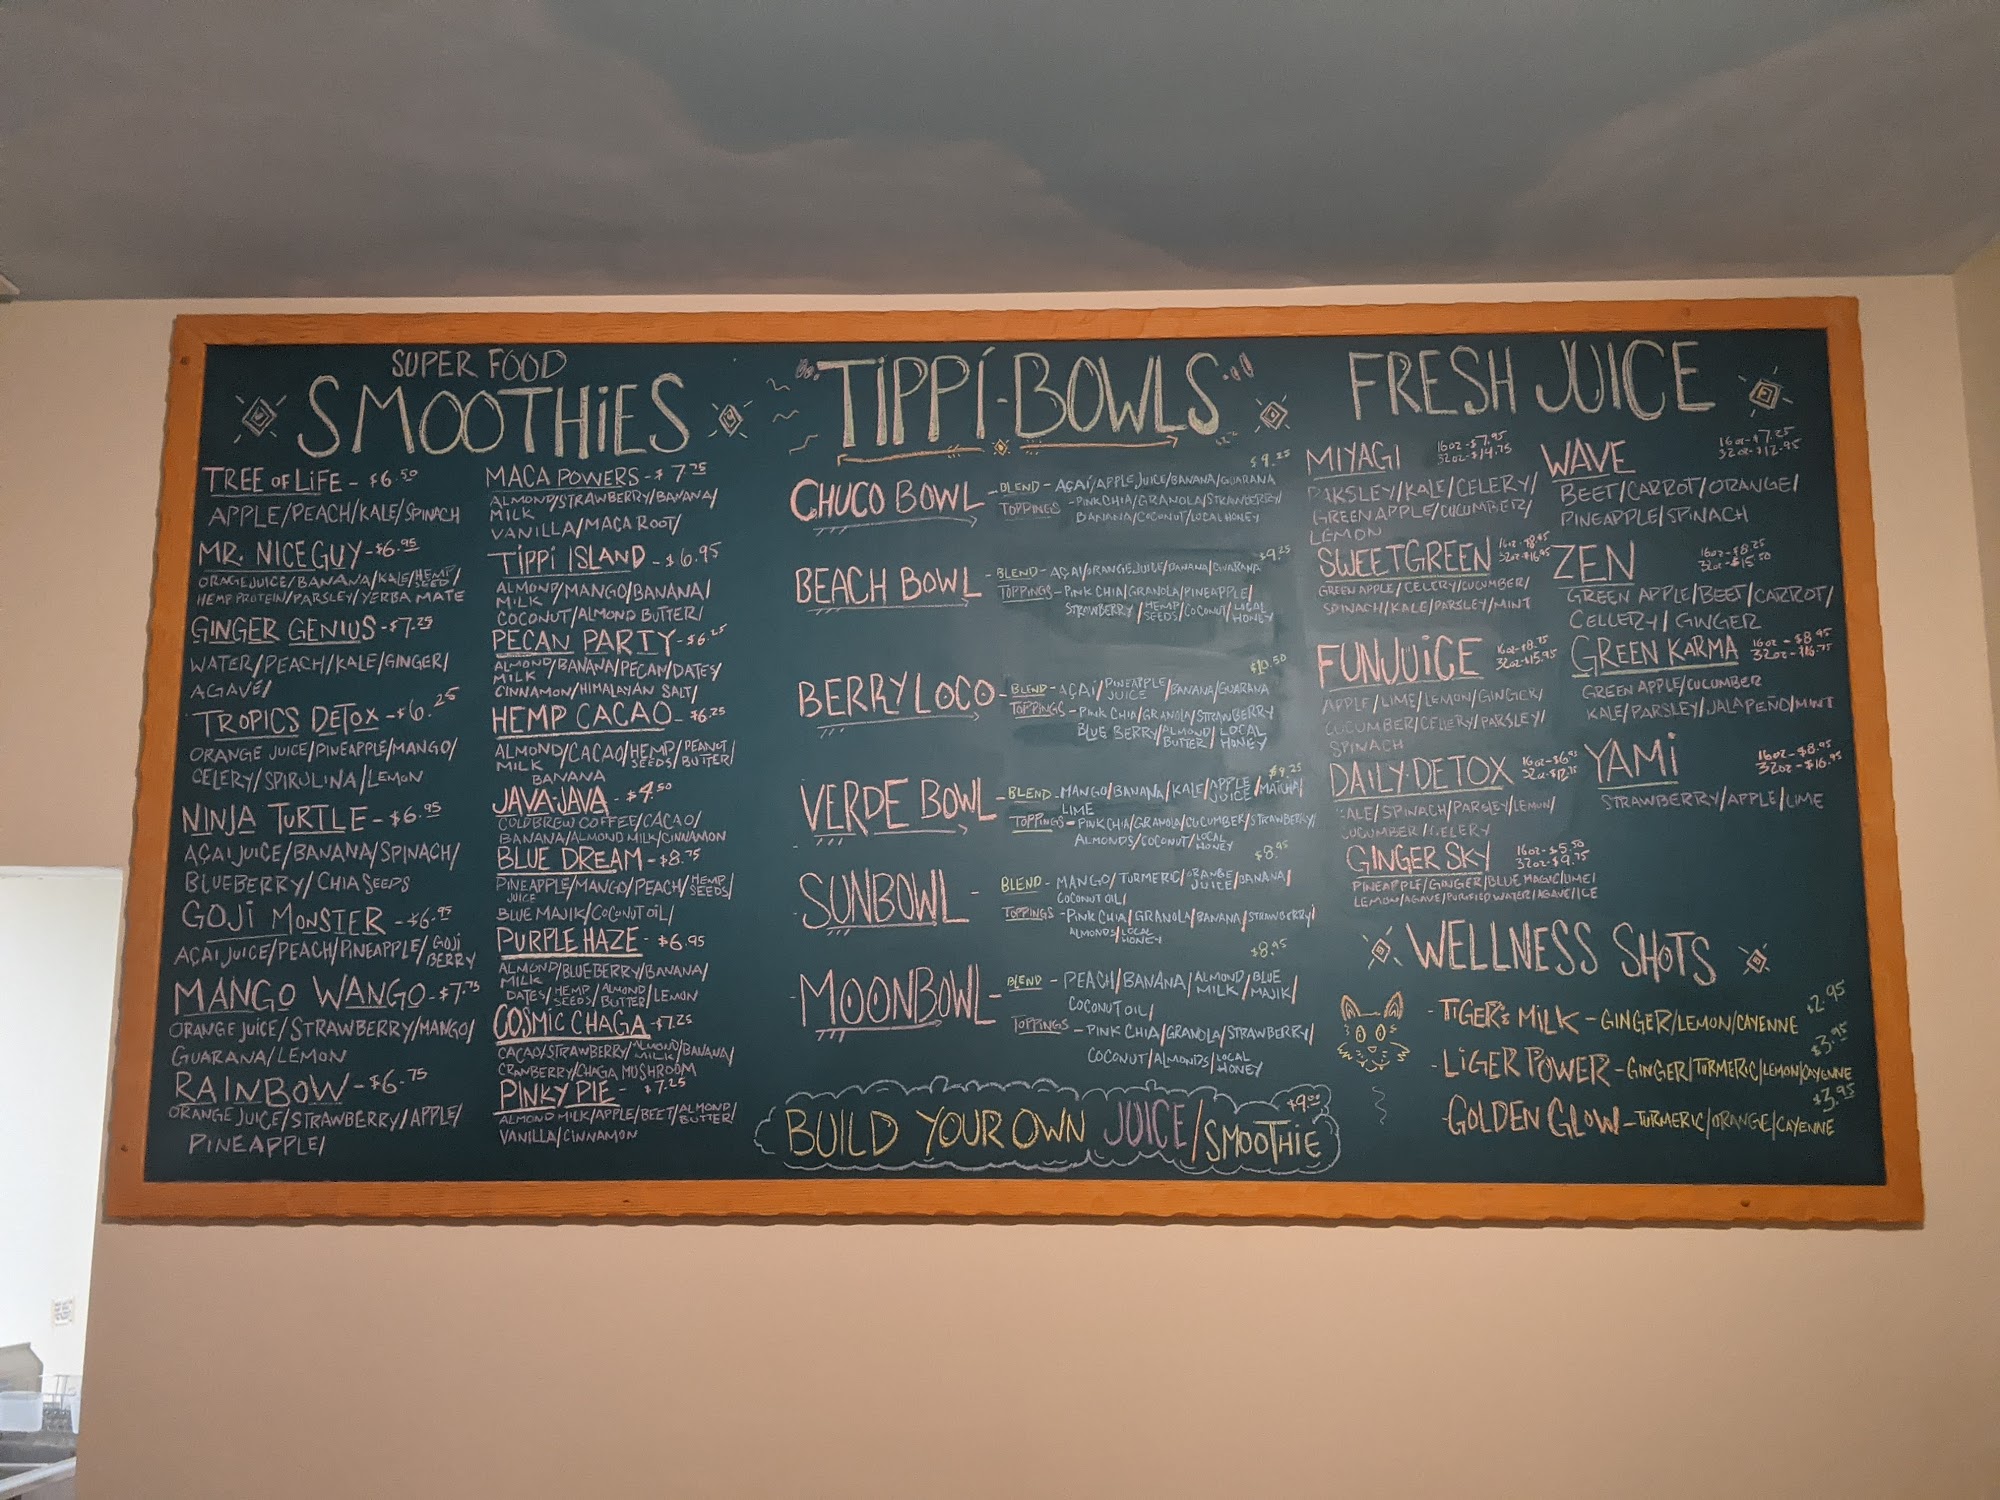 SUPER FOOD
SMOOTHIES
TREE OF LIFE - $6.50
APPLE/PEACH/KALE/SPINACH
MR. NICE GUY - $6.95
ORANGE JUICE/BANANA/KALE/HEMP SEED/
HEMP PROTEIN/PARSLEY/YERBA MATE
GINGER GENIUS - $7.25
WATER/PEACH/KALE/GINGER/
AGAVE/
TROPICS DETOX - $6.25
ORANGE JUICE/PINEAPPLE/MANGO/
CELERY/SPIRULINA/LEMON
NINJA TURTLE - $6.95
AÇAI JUICE/BANANA/SPINACH/
BLUEBERRY/CHIA SEEDS
GOJI MONSTER - $6.95
AÇAI JUICE/PEACH/PINEAPPLE/GOJI BERRY
MANGO WANGO - $7.75
ORANGE JUICE/STRAWBERRY/MANGO/
GUARANA/LEMON
RAINBOW - $6.75
ORANGE JUICE/STRAWBERRY/APPLE/
PINEAPPLE/
MACA POWERS - $7.25
ALMOND MILK/STRAWBERRY/BANANA/
VANILLA/MACA ROOT/
TIPPI ISLAND - $6.95
ALMOND MILK/MANGO/BANANA/
COCONUT/ALMOND BUTTER/
PECAN PARTY - $6.25
ALMOND MILK/BANANA/PECAN/DATES/
CINNAMON/HIMALAYAN SALT/
HEMP CACAO - $6.25
ALMOND MILK/CACAO/HEMP SEEDS/PEANUT BUTTER/
BANANA
JAVA-JAVA - $4.50
COLDBREW COFFEE/CACAO/
BANANA/ALMOND MILK/CINNAMON
BLUE DREAM - $8.75
PINEAPPLE JUICE/MANGO/PEACH/HEMP SEEDS/
BLUE MAJIK/COCONUT OIL/
PURPLE HAZE - $6.95
ALMOND MILK/BLUEBERRY/BANANA/
DATES/HEMP SEEDS/ALMOND BUTTER/LEMON
COSMIC CHAGA - $7.25
CACAO/STRAWBERRY/ALMOND MILK/BANANA/
CRANBERRY/CHAGA MUSHROOM
PINKY PIE - $7.25
ALMOND MILK/APPLE/BEET/ALMOND BUTTER/
VANILLA/CINNAMON
TIPPI-BOWLS
$9.25
CHUCO BOWL - BLEND - AÇAI/APPLE JUICE/BANANA/GUARANA
TOPPINGS - PINK CHIA/GRANOLA/STRAWBERRY/
BANANA/COCONUT/LOCAL HONEY
$9.25
BEACH BOWL - BLEND - AÇAI/ORANGE JUICE/BANANA/GUARANA
TOPPINGS - PINK CHIA/GRANOLA/PINEAPPLE/
STRAWBERRY/HEMP SEEDS/COCONUT/LOCAL HONEY
$10.50
BERRY LOCO - BLEND - AÇAI/PINEAPPLE JUICE/BANANA/GUARANA
TOPPINGS - PINK CHIA/GRANOLA/STRAWBERRY
BLUE BERRY/ALMOND BUTTER/LOCAL HONEY
VERDE BOWL - BLEND - MANGO/BANANA/KALE/APPLE JUICE/MATCHA/
LIME
TOPPINGS - PINK CHIA/GRANOLA/CUCUMBER/STRAWBERRY/
ALMONDS/COCONUT/LOCAL HONEY
$8.95
SUNBOWL - BLEND - MANGO/TURMERIC/ORANGE JUICE/BANANA/
COCONUT OIL/
TOPPINGS - PINK CHIA/GRANOLA/BANANA/STRAWBERRY/
ALMONDS/LOCAL HONEY
$8.95
- MOONBOWL - BLEND - PEACH/BANANA/ALMOND MILK/BLUE MAJIK/
COCONUT OIL/
TOPPINGS - PINK CHIA/GRANOLA/STRAWBERRY/
COCONUT/ALMONDS/LOCAL HONEY
BUILD YOUR OWN JUICE/SMOOTHIE $9.00
FRESH JUICE
MIYAGI 16oz - $7.95
32oz - $14.75
PARSLEY/KALE/CELERY/
GREEN APPLE/CUCUMBER/
LEMON
SWEETGREEN
GREEN APPLE/CELERY/CUCUMBER/
SPINACH/KALE/PARSLEY/MINT
FUNJUICE 16oz - $8.75
32oz - $15.95
APPLE/LIME/LEMON/GINGER/
CUCUMBER/CELERY/PARSLEY/
SPINACH
DAILY-DETOX 16oz - $6.95
KALE/SPINACH/PARSLEY/LEMON/
CUCUMBER/CELERY
GINGER SKY 16oz - $5.50
32oz - $9.75
PINEAPPLE/GINGER/BLUE MAGIC/LIME/
LEMON/AGAVE/PURIFIED WATER/AGAVE/ICE
WAVE 16oz - $7.25
32oz - $12.95
BEET/CARROT/ORANGE/
PINEAPPLE/SPINACH
ZEN 16oz - $8.25
32oz - $15.50
GREEN APPLE/BEET/CARROT/
CELLERY/GINGER
GREEN KARMA 16oz - $8.95
32oz - $16.75
GREEN APPLE/CUCUMBER
KALE/PARSLEY/JALAPEÑO/MINT
YAMI 16oz - $8.95
32oz - $16.95
STRAWBERRY/APPLE/LIME
WELLNESS SHOTS
- TIGER'S MILK - GINGER/LEMON/CAYENNE $2.95
- LIGER POWER - GINGER/TURMERIC/LEMON/CAYENNE $3.95
- GOLDEN GLOW - TURMERIC/ORANGE/CAYENNE $3.95